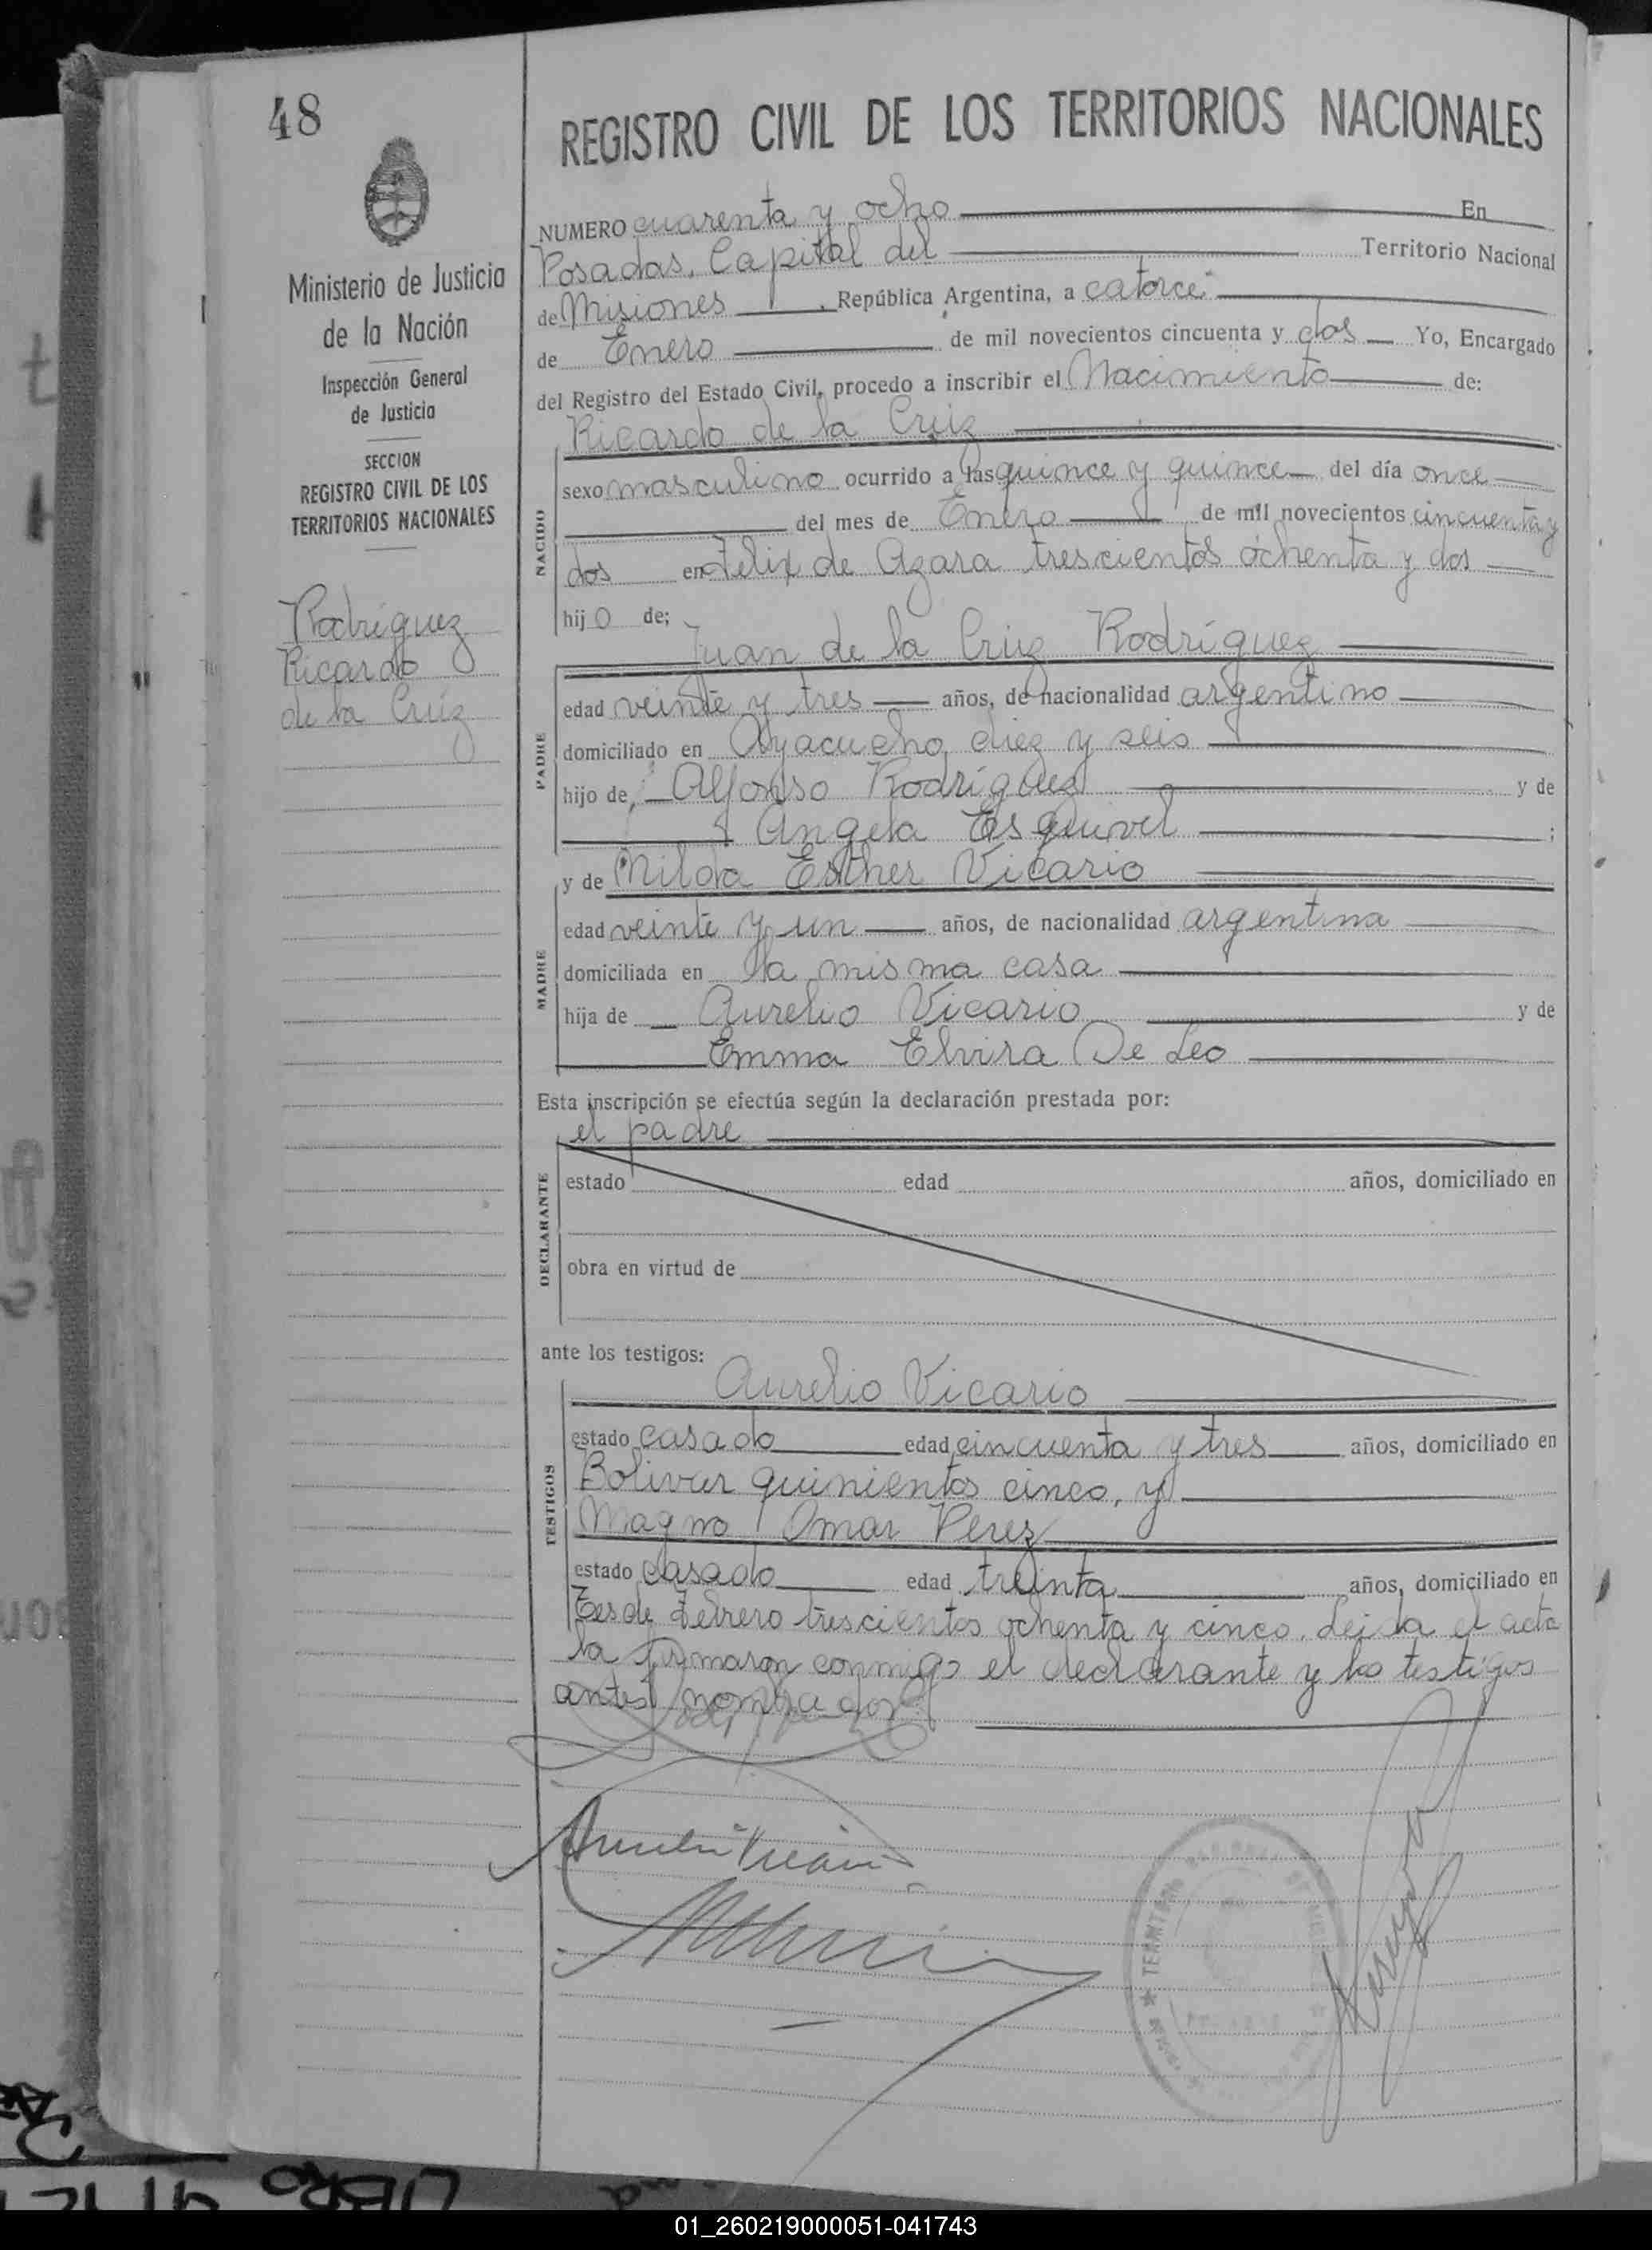 48
Ministerio de Justicia
de la Nación
Inspección General
de Justicia
SECCION
REGISTRO CIVIL DE LOS
TERRITORIOS NACIONALES
Rodríguez
Ricardo
de la Cruz
REGISTRO CIVIL DE LOS TERRITORIOS NACIONALES
NUMERO cuarenta y ocho En
Posadas, Capital del Territorio Nacional
de Misiones, República Argentina, a catorce
de Enero de mil novecientos cincuenta y dos Yo, Encargado
del Registro del Estado Civil, procedo a inscribir el Nacimiento de:
Ricardo de la Cruz
NACIDO
sexo masculino ocurrido a las quince y quince del día once
del mes de Enero de mil novecientos cincuenta y
dos en Felix de Azara trescientos ochenta y dos
hijo de;
Juan de la Cruz Rodríguez
PADRE
edad veinte y tres años, de nacionalidad argentino
domiciliado en Ayacucho diez y seis
hijo de, Alfonso Rodríguez y de
Angela Esquivel ;
y de Nilda Esther Vicario
MADRE
edad veinte y un años, de nacionalidad argentina
domiciliada en la misma casa
hija de Aurelio Vicario y de
Emma Elvira De Leo
Esta inscripción se efectúa según la declaración prestada por:
el padre
DECLARANTE
estado edad años, domiciliado en
obra en virtud de
ante los testigos:
Aurelio Vicario
TESTIGOS
estado casado edad cincuenta y tres años, domiciliado en
Bolivar quinientos cinco, y
Magno Omar Perez
estado casado edad treinta años, domiciliado en
Tes de Febrero trescientos ochenta y cinco. Leida el acta
la firmaron conmigo el declarante y los testigos
antes nombrados
Aurelio Vicario
TERRITORIO
LIBRO
01_260219000051-041743